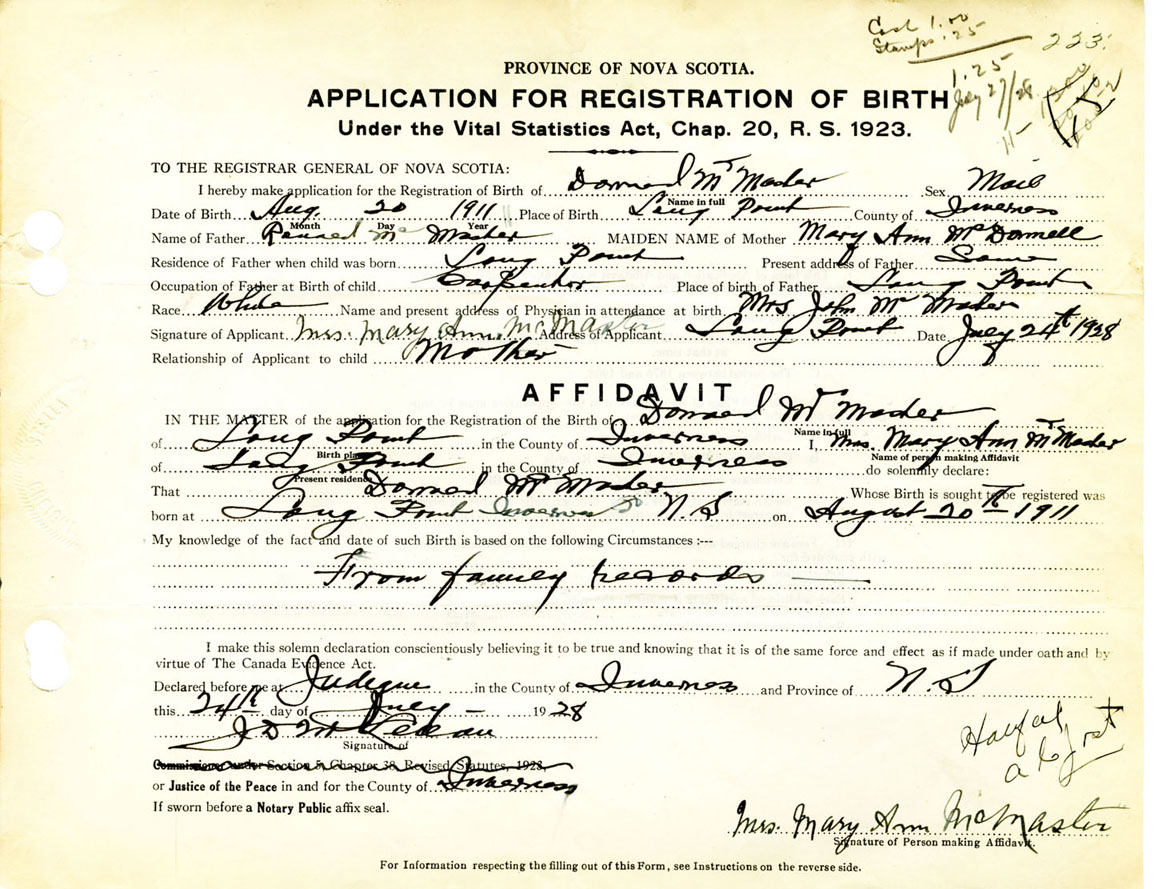 Cash 1.00
Stamps .25
1.25
223.
July 27/28
PROVINCE OF NOVA SCOTIA.
APPLICATION FOR REGISTRATION OF BIRTH
Under the Vital Statistics Act, Chap. 20, R. S. 1923.
TO THE REGISTRAR GENERAL OF NOVA SCOTIA:
I hereby make application for the Registration of Birth of Donald McMaster Sex Male
Name in full
Date of Birth Aug. 20 1911 Place of Birth Long Point County of Inverness
Month Day Year
Name of Father Ronald McMaster MAIDEN NAME of Mother Mary Ann McDonnell
Residence of Father when child was born Long Point Present address of Father Same
Occupation of Father at Birth of child Carpenter Place of birth of Father Long Point
Race White Name and present address of Physician in attendance at birth Mrs John McMaster
Signature of Applicant Mrs. Mary Ann McMaster Address of Applicant Long Point Date July 24th 1928
Relationship of Applicant to child Mother
AFFIDAVIT
IN THE MATTER of the application for the Registration of the Birth of Donald McMaster
Name in full
of Long Point in the County of Inverness I, Mrs. Mary Ann McMaster
Birth place Name of person making Affidavit
of Long Point in the County of Inverness do solemnly declare:
Present residence
That Donald McMaster Whose Birth is sought to be registered was
born at Long Point Inverness Co N.S on August 20th 1911
My knowledge of the fact and date of such Birth is based on the following Circumstances :---
From family records
I make this solemn declaration conscientiously believing it to be true and knowing that it is of the same force and effect as if made under oath and by
virtue of The Canada Evidence Act.
Declared before me at Judique in the County of Inverness and Province of N.S
this 24th day of July 1928
Signature of
Commissioner under Section 5, Chapter 38, Revised Statutes, 1923,
or Justice of the Peace in and for the County of Inverness
If sworn before a Notary Public affix seal.
Halifax
Mrs. Mary Ann McMaster
Signature of Person making Affidavit.
For Information respecting the filling out of this Form, see Instructions on the reverse side.